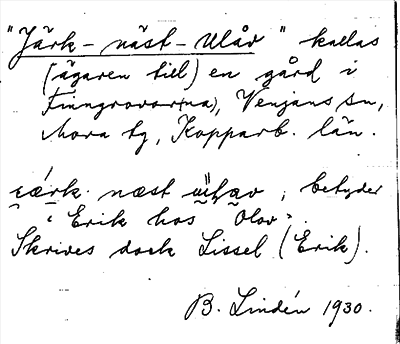 "Järk-näst-Ulåv" kallas
(ägaren till) en gård i
Finngruvor(na), Venjans sn,
Mora tg, Kopparb. län.
eærk. næst , betyder
"Erik hos Olov".
Skrives dock Lissel (Erik).
B. Lindén 1930.